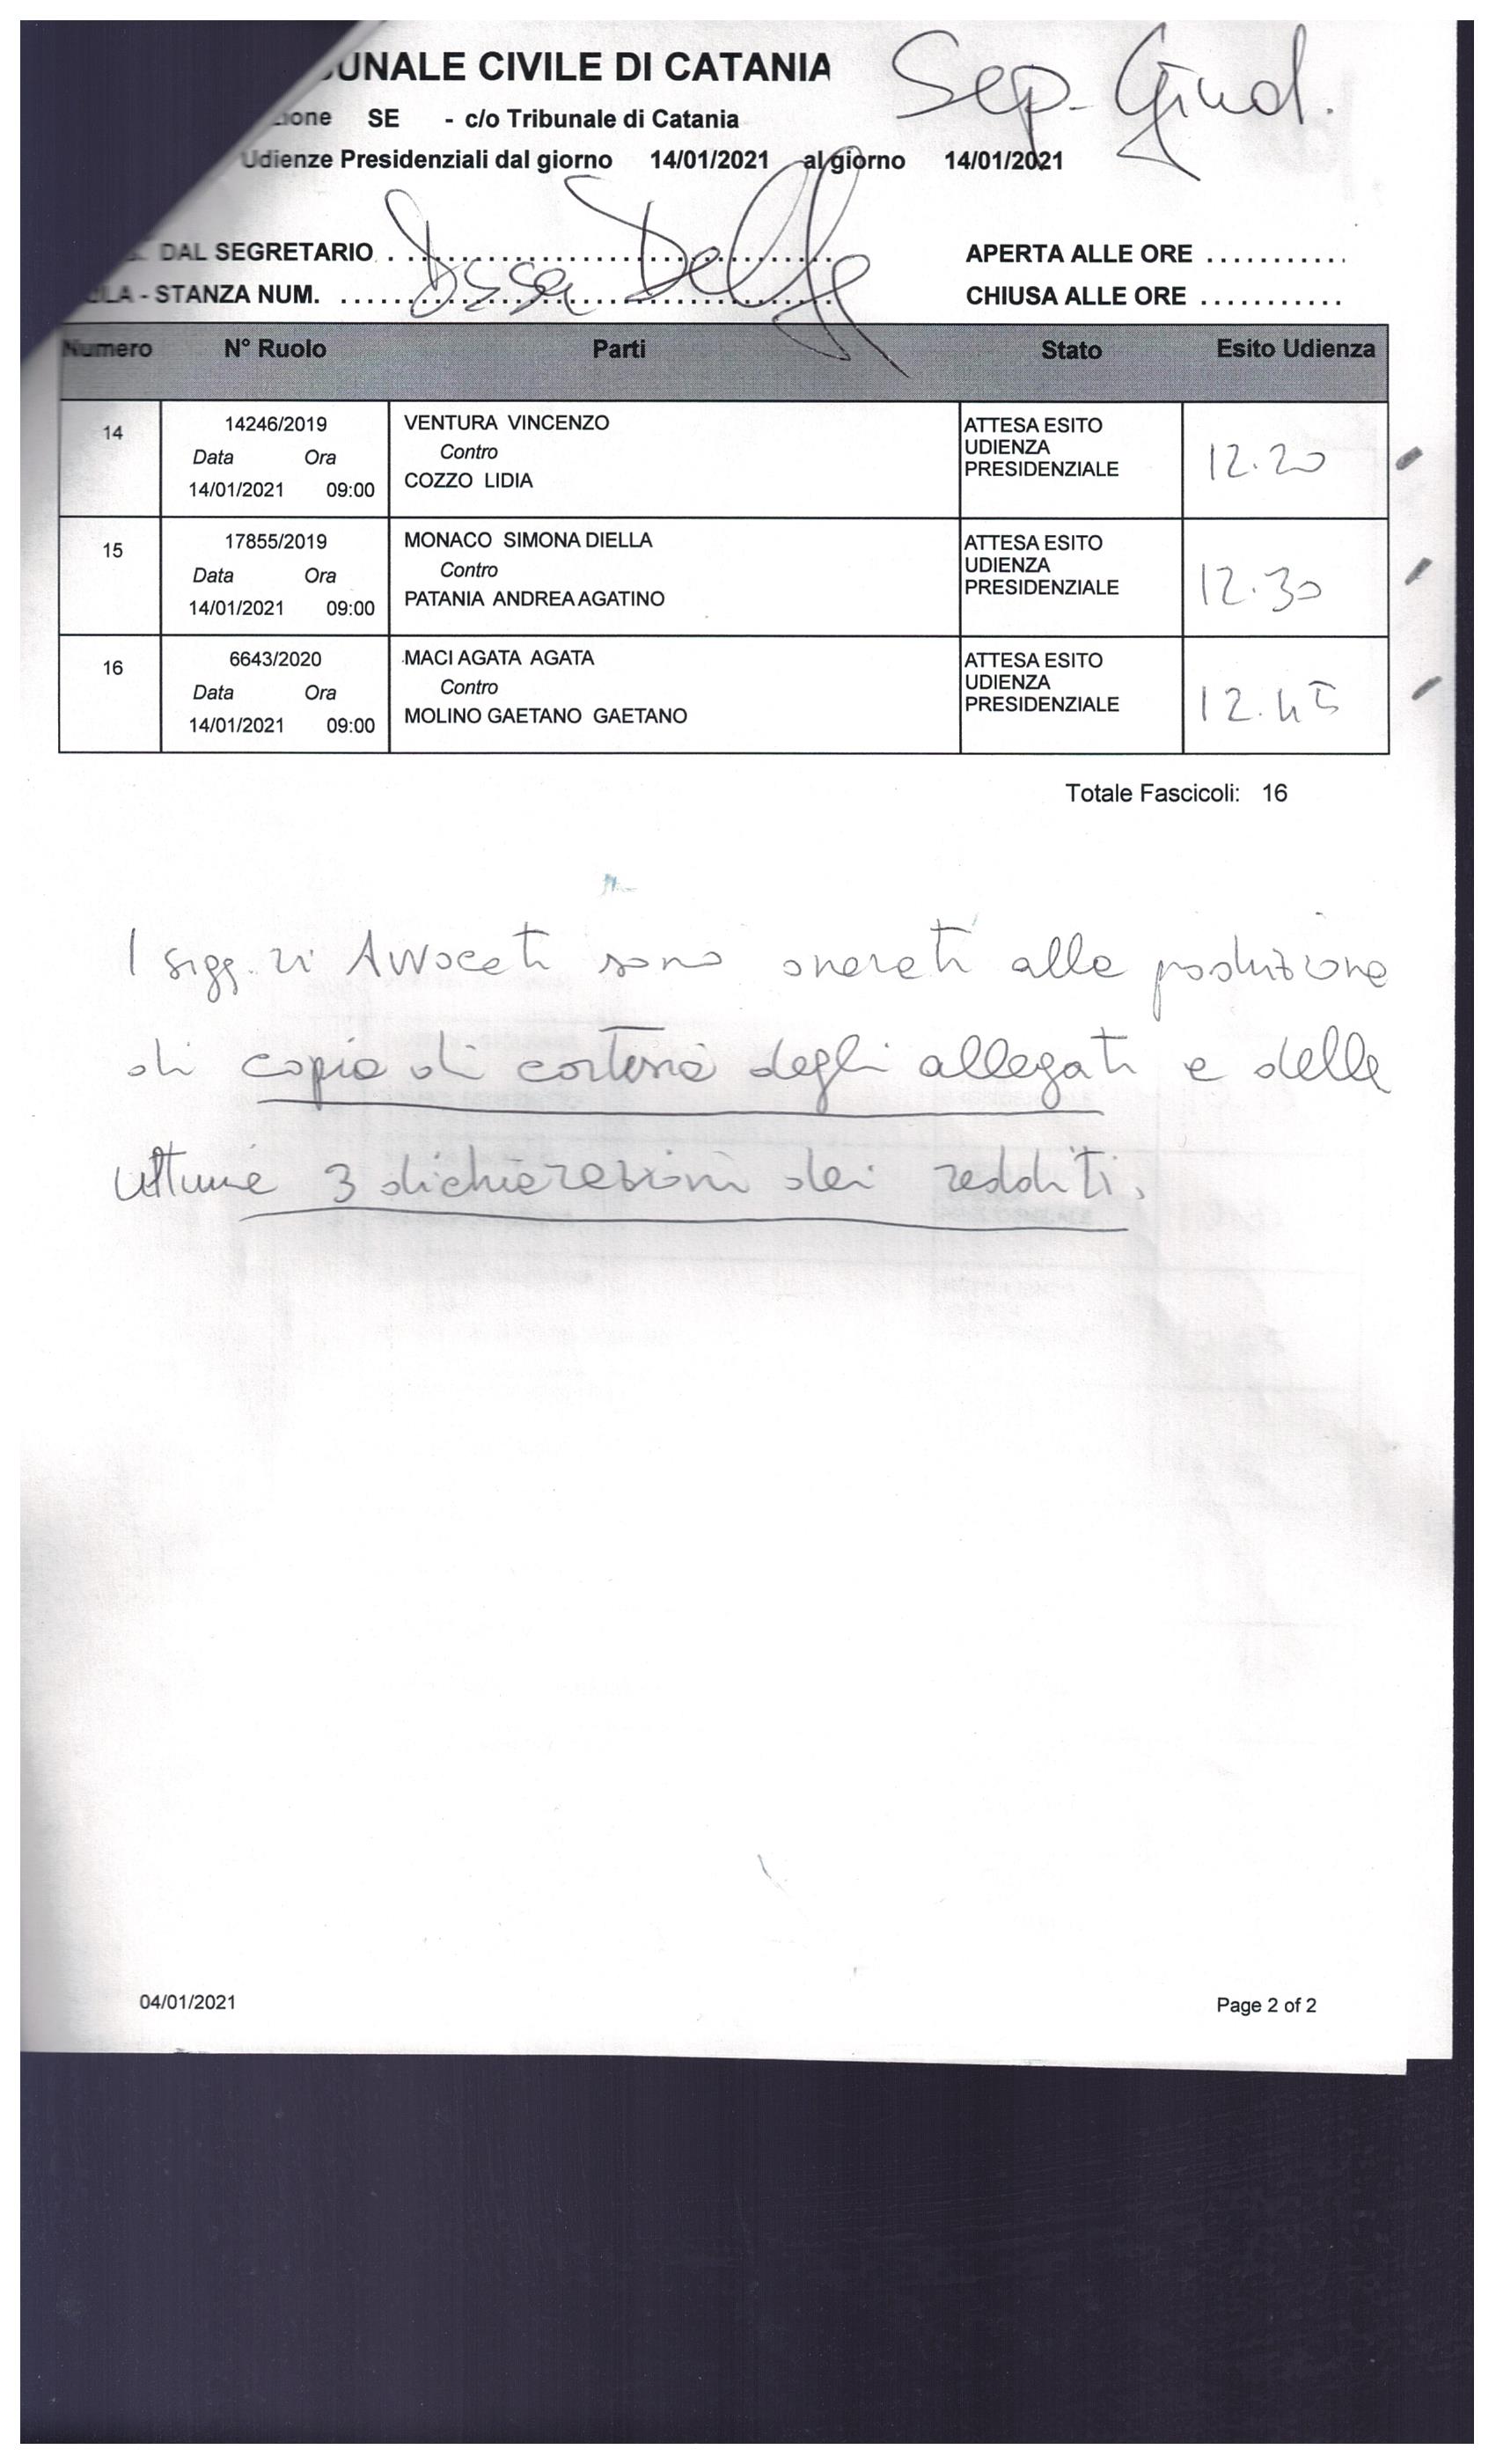 UNALE CIVILE DI CATANIA
Sep. Giud.
ione SE - c/o Tribunale di Catania
Udienze Presidenziali dal giorno 14/01/2021 al giorno 14/01/2021
DAL SEGRETARIO . .......... APERTA ALLE ORE ...........
- STANZA NUM. .......... CHIUSA ALLE ORE ...........
D.ssa
Numero N° Ruolo Parti Stato Esito Udienza
14 14246/2019 VENTURA VINCENZO ATTESA ESITO
Data Ora Contro UDIENZA 12.20
14/01/2021 09:00 COZZO LIDIA PRESIDENZIALE
15 17855/2019 MONACO SIMONA DIELLA ATTESA ESITO
Data Ora Contro UDIENZA 12.30
14/01/2021 09:00 PATANIA ANDREA AGATINO PRESIDENZIALE
16 6643/2020 MACI AGATA AGATA ATTESA ESITO
Data Ora Contro UDIENZA 12.45
14/01/2021 09:00 MOLINO GAETANO GAETANO PRESIDENZIALE
Totale Fascicoli: 16
I sigg.ri Avvocati sono onerati alla produzione
di copia di cortesia degli allegati e delle
ultime 3 dichiarazioni dei redditi.
04/01/2021 Page 2 of 2